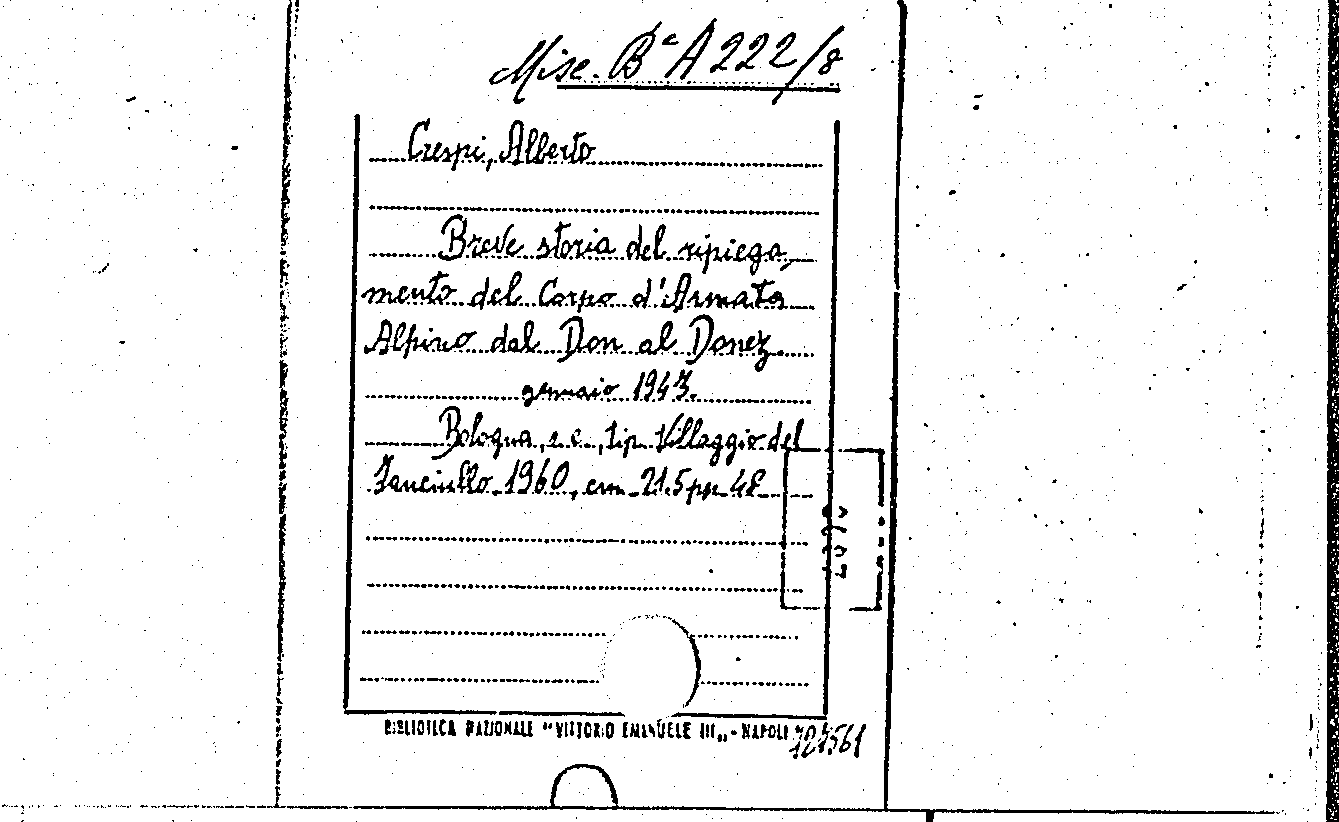 Misc. Bª A 222/8
Crespi, Alberto
Breve storia del ripiega
mento del Corpo d'Armata
Alpino dal Don al Donez.
gennaio 1943.
Bologna, s.e., tip. Villaggio del
Fanciullo 1960, cm. 21.5 pp. 48
BIBLIOTECA NAZIONALE "VITTORIO EMANUELE III„ - NAPOLI